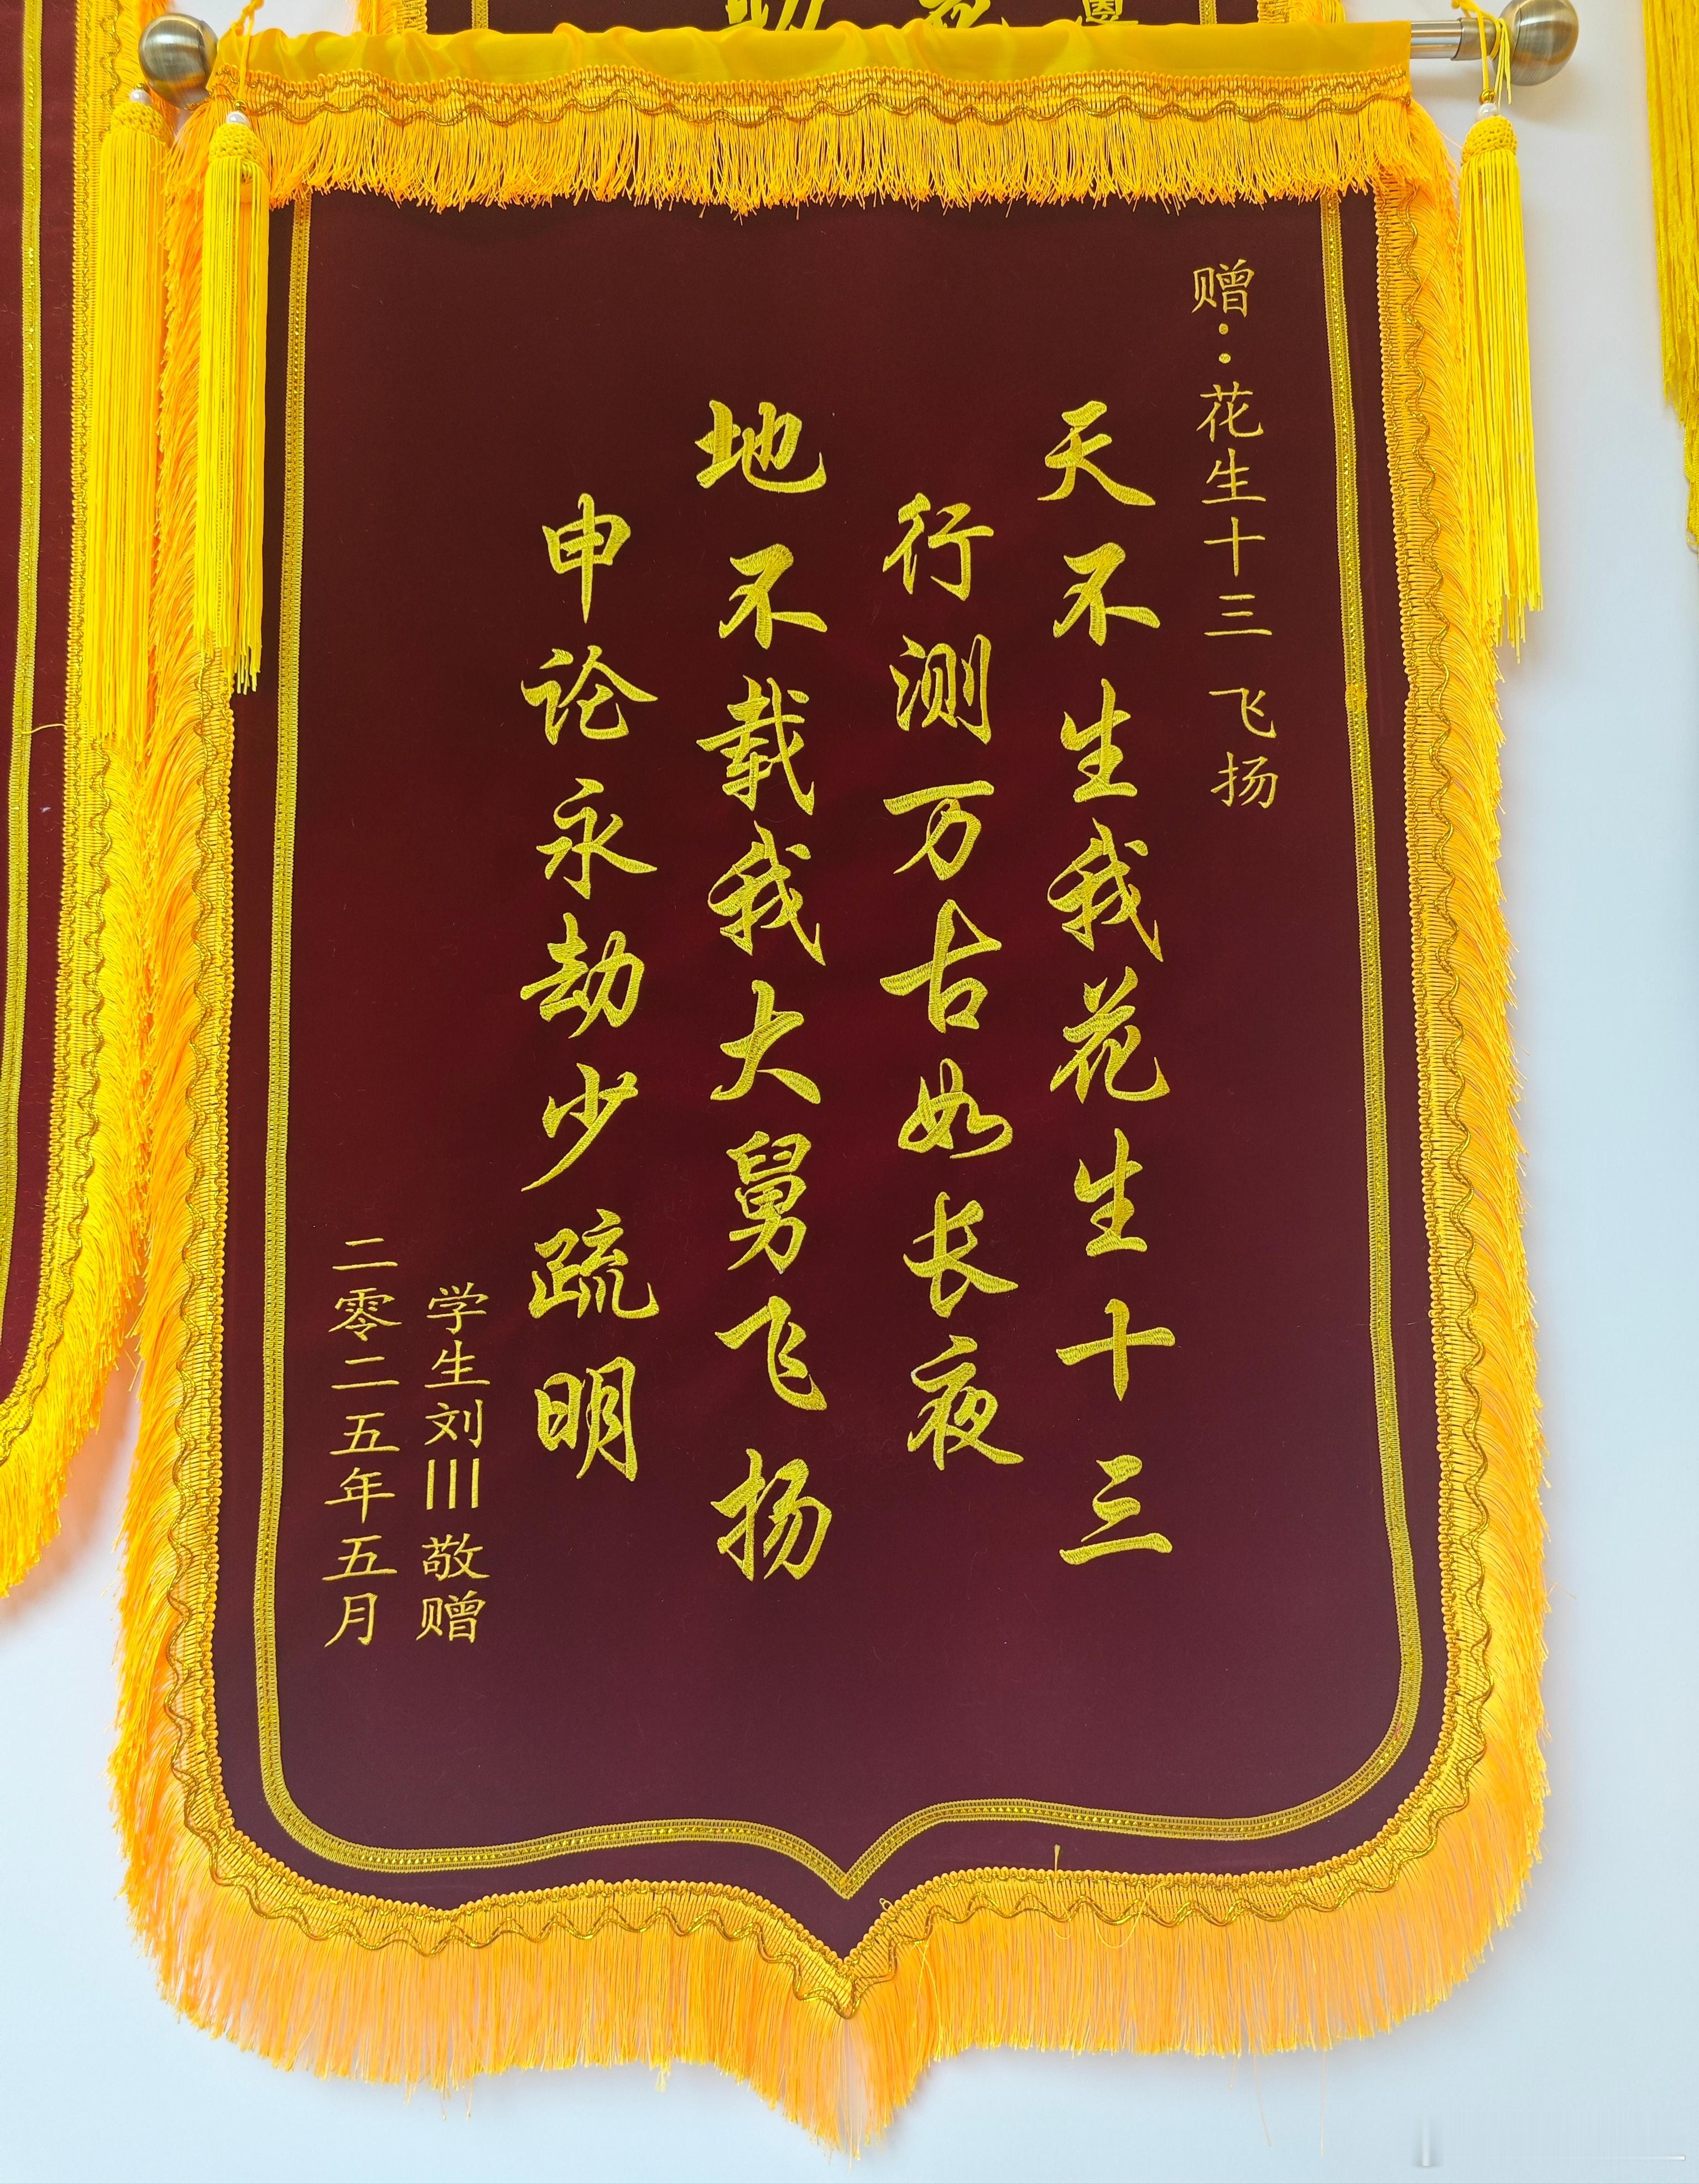 赠：花生十三 飞扬
天不生我花生十三
行测万古如长夜
地不载我大舅飞扬
申论永劫少疏明
学生刘川敬赠
二零二五年五月